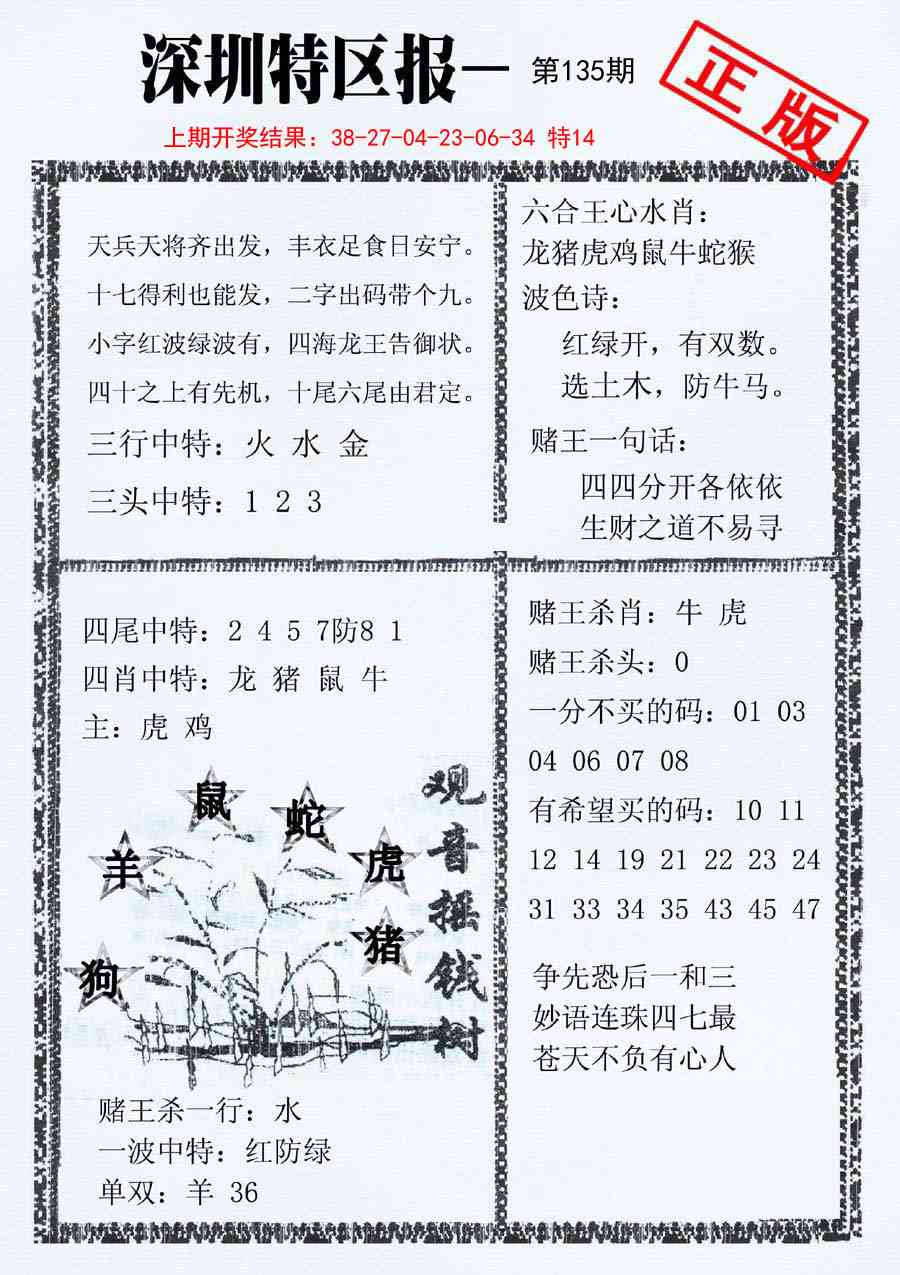 深圳特区报一 第135期
正版
上期开奖结果：38-27-04-23-06-34 特14
天兵天将齐出发，丰衣足食日安宁。
十七得利也能发，二字出码带个九。
小字红波绿波有，四海龙王告御状。
四十之上有先机，十尾六尾由君定。
三行中特：火 水 金
三头中特：1 2 3
六合王心水肖：
龙猪虎鸡鼠牛蛇猴
波色诗：
红绿开，有双数。
选土木，防牛马。
赌王一句话：
四四分开各依依
生财之道不易寻
四尾中特：2 4 5 7防8 1
四肖中特：龙 猪 鼠 牛
主：虎 鸡
鼠
蛇
羊
虎
猪
狗
观音摇钱树
赌王杀一行：水
一波中特：红防绿
单双：羊 36
赌王杀肖：牛 虎
赌王杀头：0
一分不买的码：01 03
04 06 07 08
有希望买的码：10 11
12 14 19 21 22 23 24
31 33 34 35 43 45 47
争先恐后一和三
妙语连珠四七最
苍天不负有心人